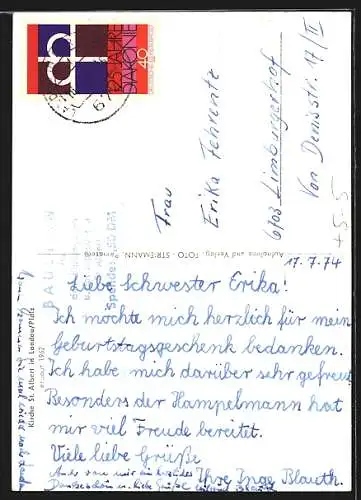 125 JAHRE
DIAKONIE
40
67
Frau
Erika Fehrentz
6703 Limburgerhof
Von Denisstr. 17/II
Aufnahme und Verlag: FOTO - STRIEMANN,
17.7.74
Liebe Schwester Erika!
Ich möchte mich herzlich für mein
Geburtstagsgeschenk bedanken.
Ich habe mich darüber sehr gefreut.
Besonders der Hampelmann hat
mir viel Freude bereitet.
Viele liebe Grüße
Ihre Inge Blauth.
Auch von mir ein herzliches
Dankeschön u. liebe Grüße
Blauth
Kirche St. Albert in Landau/Pfalz